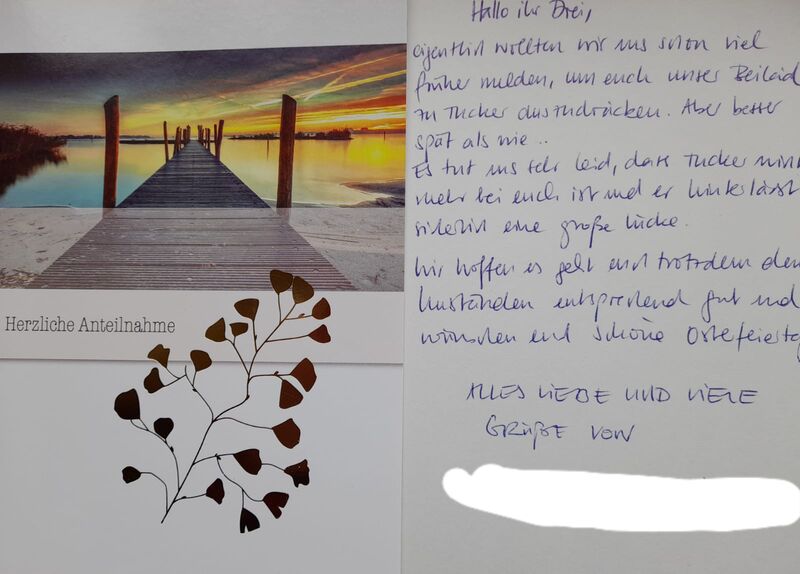 Herzliche Anteilnahme
Hallo ihr Drei,
eigentlich wollten wir uns schon viel
früher melden, um euch unser Beileid
zu Tucker auszudrücken. Aber besser
spät als nie..
Es tut uns sehr leid, dass Tucker nicht
mehr bei euch ist und er hinterlässt
sicherlich eine große Lücke.
Wir hoffen es geht euch trotzdem den
Umständen entsprechend gut und
wünschen euch schöne Osterfeiertag
ALLES LIEBE UND VIELE
GRÜßE VON